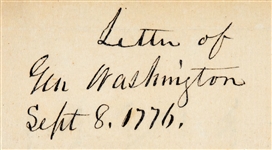 Letter of
Gen Washington
Sept 8. 1776.